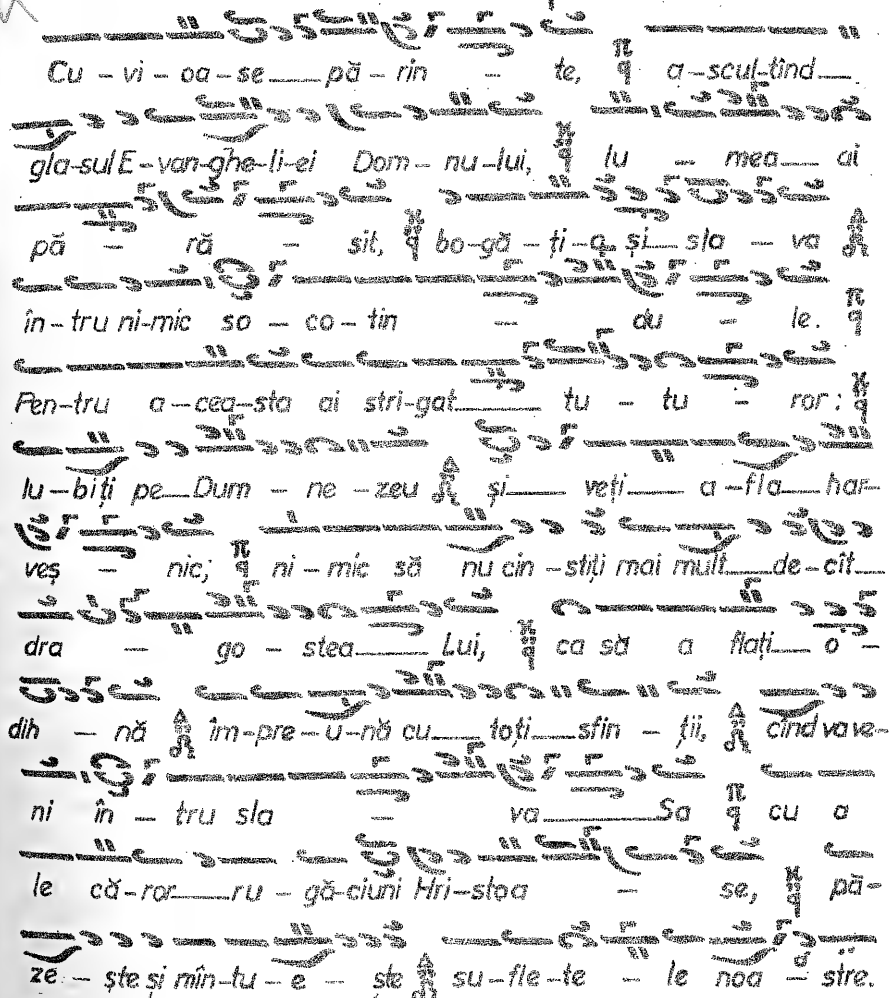 Cu – vi – oa – se___ pă – rin – te, π q a – scul – tînd___
gla – sul E – van – ghe – li – ei Dom – nu – lui, q lu – mea___ ai
pă – ră – sit, q bo – gă – ți – a și___ sla – va Δ
în – tru ni – mic so – co – tin – du – le. π q
Pen – tru a – cea – sta ai stri – gat___ tu – tu – ror: q
lu – biți pe___ Dum – ne – zeu Δ și___ veți___ a – fla___ har –
veș – nic; π q ni – mic să nu cin – stiți mai mult___ de – cît___
dra – go – stea___ Lui, q ca să a flați___ o –
dih – nă Δ îm – pre – u – nă cu___ toți___ sfin – ții, Δ cînd va ve –
ni în – tru sla – va___ Sa π q cu a
le că – ror___ ru – gă – ciuni Hri – stoa – se, q pă –
ze – ște și mîn – tu – e – ște Δ su – fle – te – le noa – stre.